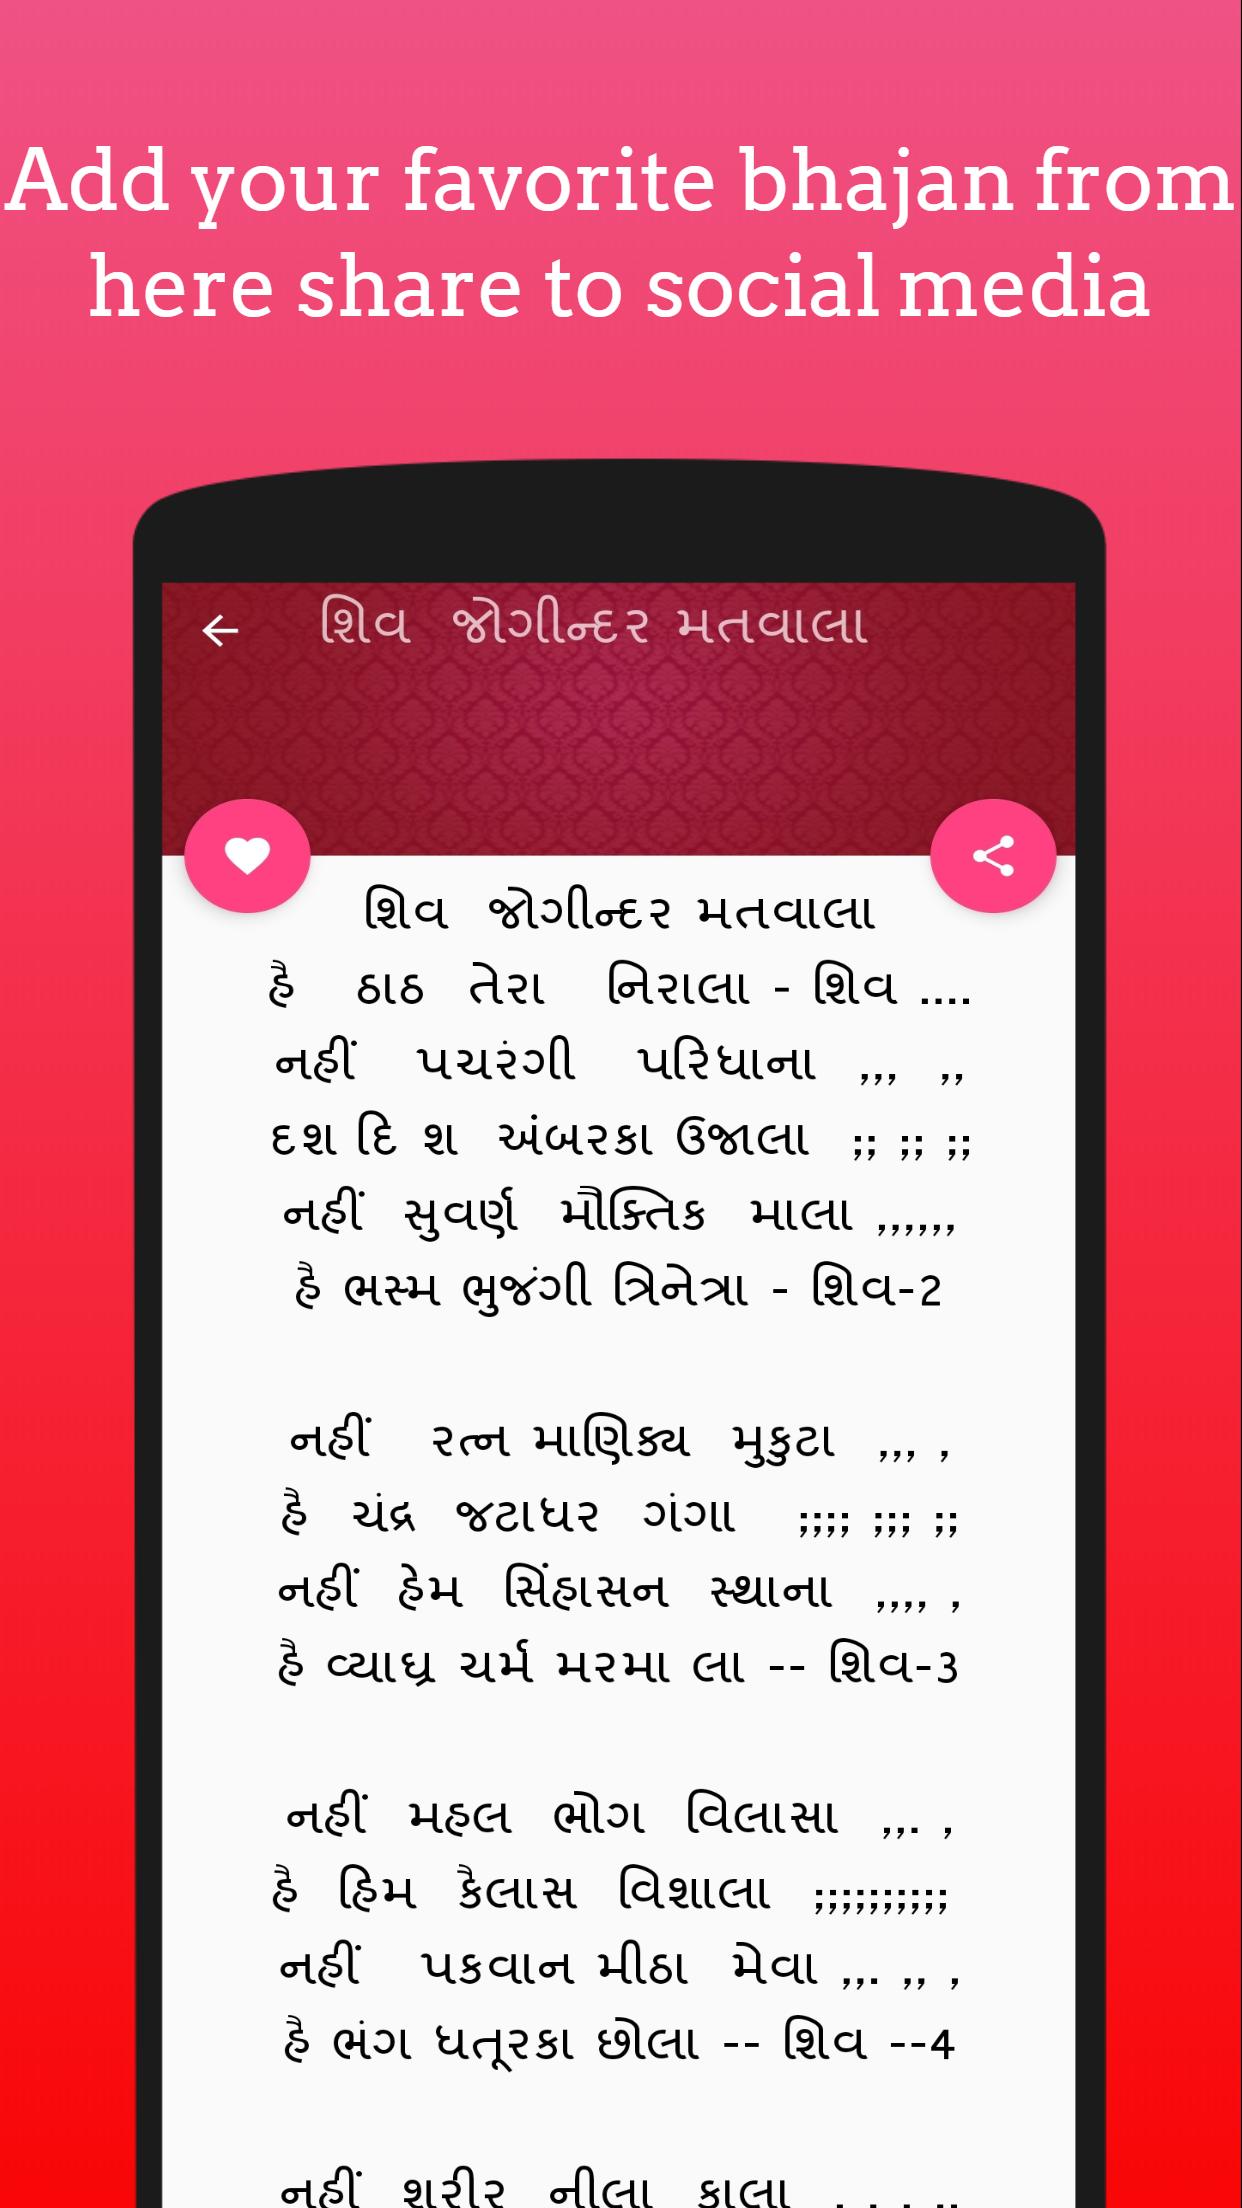 Add your favorite bhajan from
here share to social media
શિવ જોગીન્દર મતવાલા
શિવ જોગીન્દર મતવાલા
હૈ ઠાઠ તેરા નિરાલા - શિવ ....
નહીં પચરંગી પરિધાના ,,, ,,
દશ દિ શ અંબરકા ઉજાલા ;; ;; ;;
નહીં સુવર્ણ મૌક્તિક માલા ,,,,,,
હૈ ભસ્મ ભુજંગી ત્રિનેત્રા - શિવ-2
નહીં રત્ન માણિક્ય મુકુટા ,,, ,
હૈ ચંદ્ર જટાધર ગંગા ;;;; ;;; ;;
નહીં હેમ સિંહાસન સ્થાના ,,,, ,
હૈ વ્યાઘ્ર ચર્મ મરમા લા -- શિવ-3
નહીં મહલ ભોગ વિલાસા ,,. ,
હૈ હિમ કૈલાસ વિશાલા ;;;;;;;;;;
નહીં પકવાન મીઠા મેવા ,,. ,, ,
હૈ ભંગ ધતૂરકા છોલા -- શિવ --4
નહીં શરીર નીલા કાલા , , , ,,